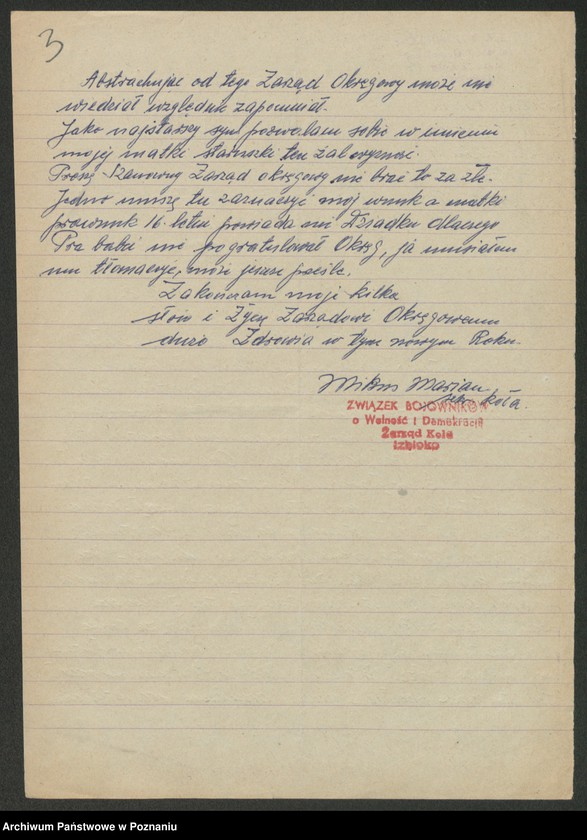 3
Abstrachując od tego Zarząd Okręgowy może nie
wiedział względnie zapomniał.
Jako najstarszy syn pozwalam sobie w imieniu
mojej matki staruszki ten żal wyrazić.
Proszę Szanowny Zarząd okręgowy nie brać to za złe.
Jedno muszę tu zaznaczyć mój wnuk a matki
prawnuk 16-letni powiada mi Dziadku dlaczego
Pra babci nie pogratulował Okręg, ja musiałem
mu tłomaczyć, może jeszcze prześle.
Zakończam moje kilka
słów i Życzę Zarządowi Okręgowemu
dużo Zdrowia w tym nowym Roku.
Marian
Koła.
ZWIĄZEK BOJOWNIKÓW
o Wolność i Demokrację
Zarząd Koła
Izbicko
Archiwum Państwowe w Poznaniu